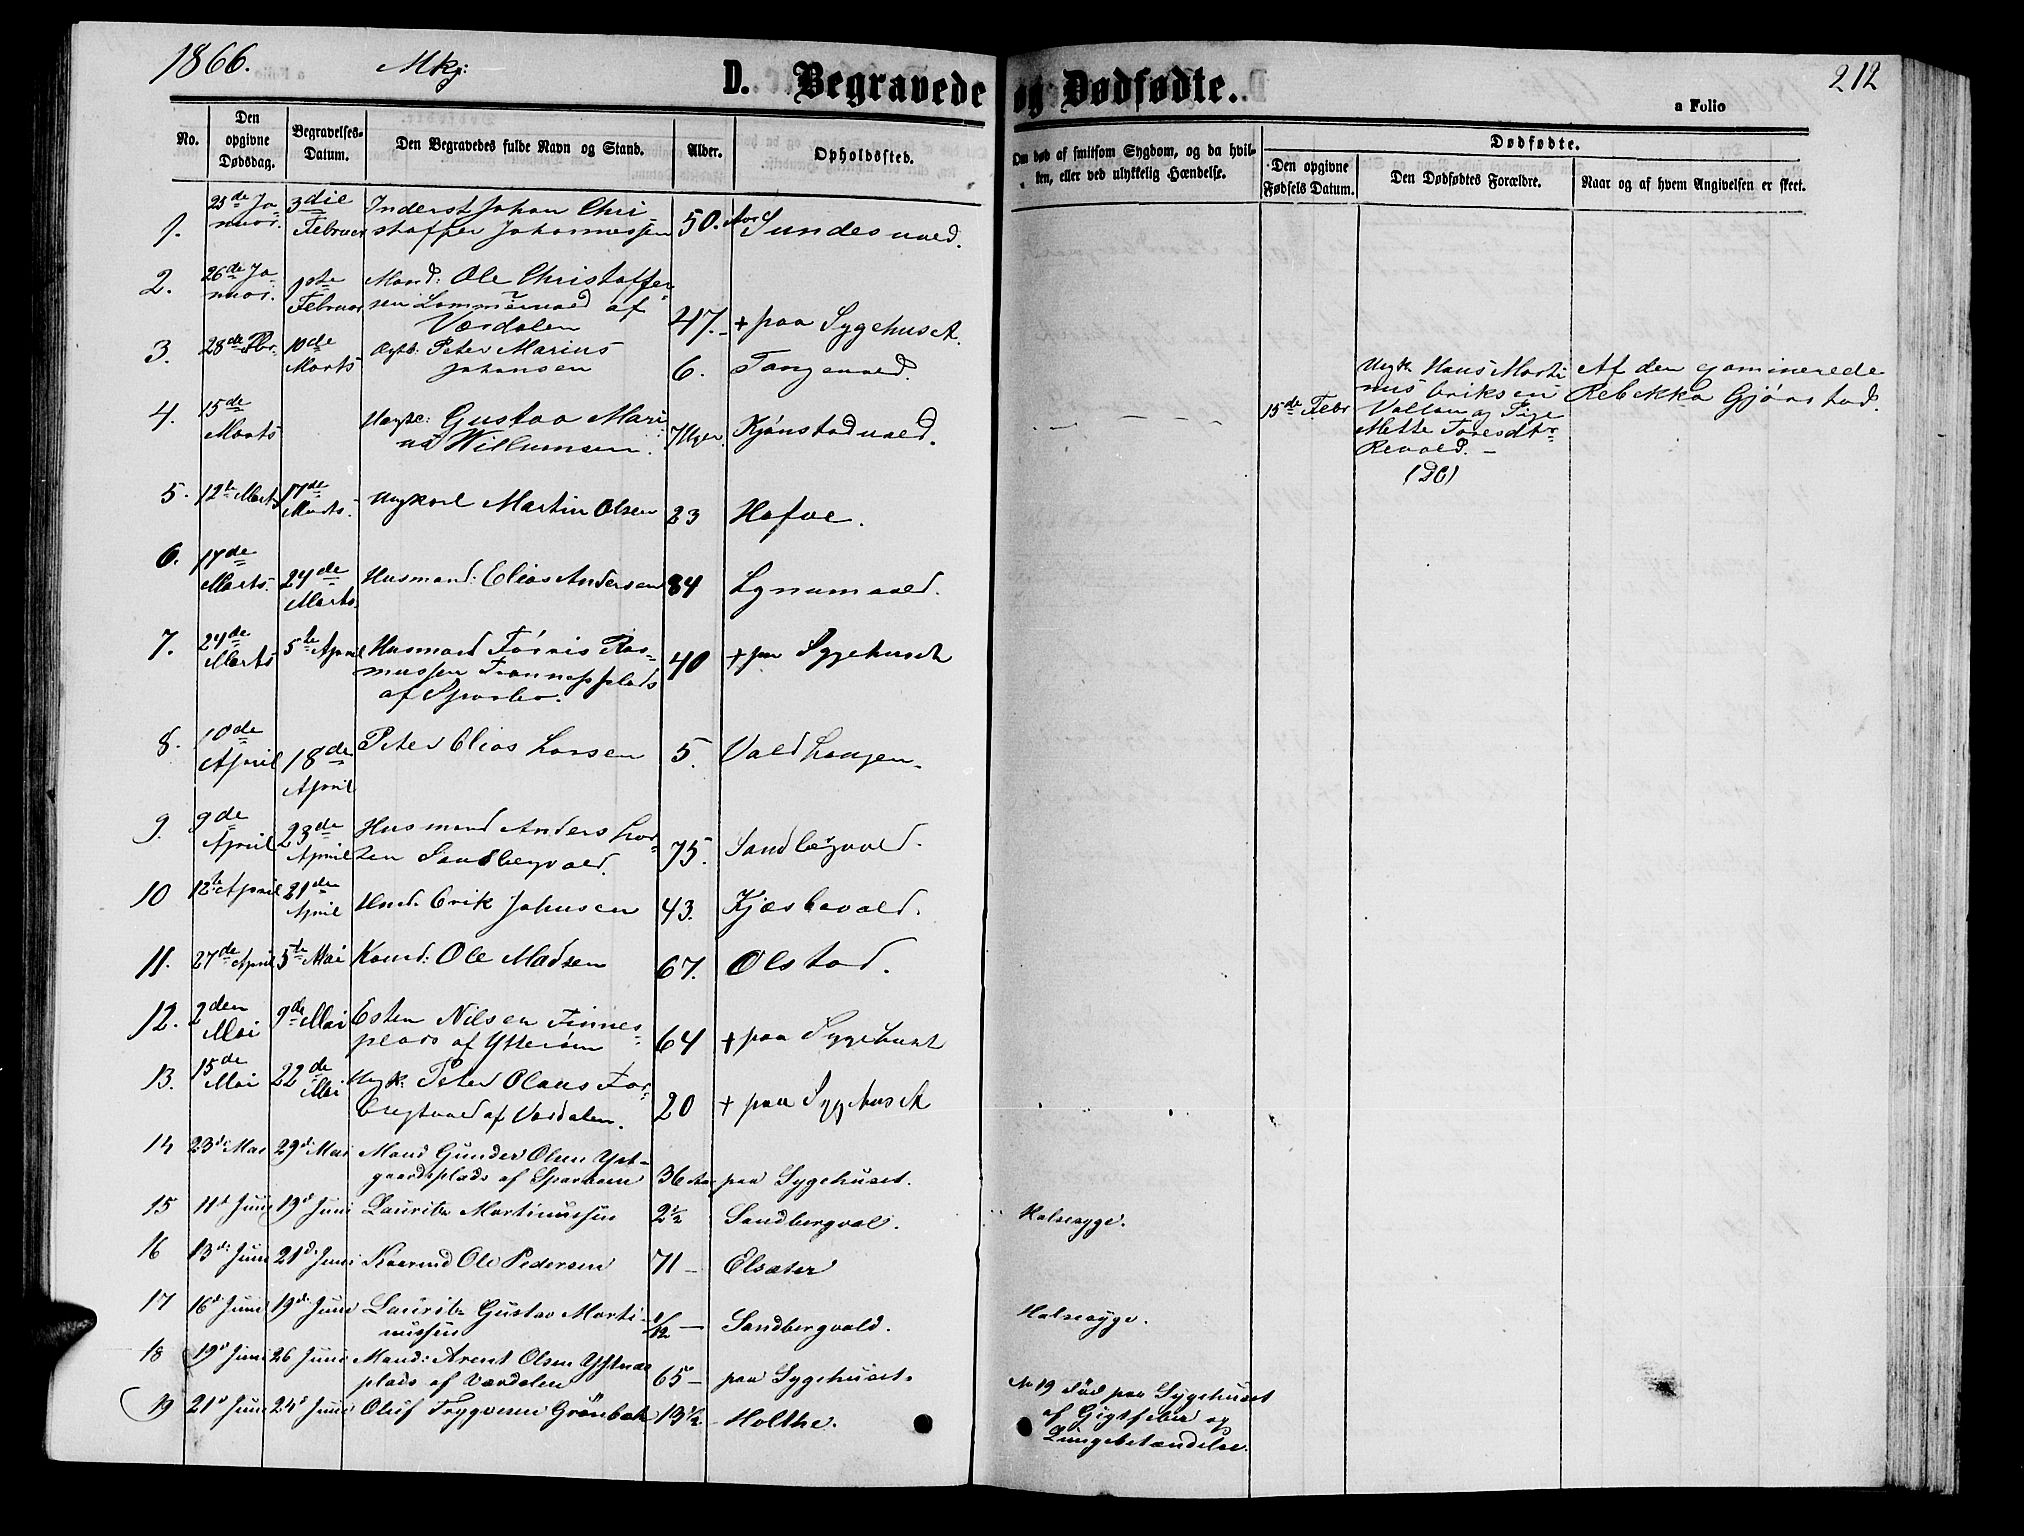 1866.
Mkj:
D. Begravede og Dødfødte.
212
a Folio
No.
Den opgivne Dødsdag.
Begravelses-Datum.
Den Begravedes fulde Navn og Stand.
Alder.
Opholdssted.
Om død af smitsom Sygdom, og da hvil-
ken, eller ved ulykkelig Hændelse.
Dødfødte.
Den opgivne Fødsels Datum.
Den Dødfødtes Forældre.
Naar og af hvem Angivelsen er skeet.
1. 25de Ja- 3die Inderst Johan Chri-
nuar. Februar stoffer Johannessen 50. Aar Sundesvald.
2. 26de Ja- Mand: Ole Christoffer-
nuar. Februar sen af
Værdalen 47. + paa Sygehuset.
3. 28de Fbr. 10de Peter Marius
Marts Johansen 6. Tangevald.
4. 15de Gustav Mari-
Marts us Willumsen. Kjönstadvald.
15de Febr Ungk. Hans Marti-
nus Eriksen
Vollan og Pige
Mette
(DC)
Af den examinerede
Rebekka Gjørstad.
5. 12te Marts 17de Marts. Ungkarl Martin Olsen 23 Hafve.
6. 17de Marts. 24de Marts. Husmand: Elias Andersen 84 Lynumvald.
7. 24de 5te April Husmand Tørris Ras-
Marts mussen plads 40 + paa Sygehuset
af Sparbo.
8. 10de April 18de April Peter Elias Larsen 5. Valdhaugen.
9. 9de 23de Husmand Anders Lar-
April April sen Sandbergvald. 75. Sandbergvald.
10 12te April 21de April Hmd. Erik Johnsen 43. Kjesbovald.
11. 27de April 5te Mai Kaard: Ole Madsen 67. Olstad.
12. 2den 9de Mai Esten Nilsen Finnes-
Mai plads af Ytterøen 64 + paa Sygehuset
13. 15de 22de Ungk: Peter Olaus For-
Mai Mai bregtvald af Værdalen. 20 + paa Sygehuset
14 23de Mai 29de Mai Mand Gunder Olsen Yst-
gaardsplads af Sparboen 36 Aar paa Sygehuset.
15 11d Juni 19d Juni Laurits Martinussen 2 1/2 Sandbergval. Halsesyge.
16 13de Juni 21d Juni Kaarmd Ole Pedersen 71 – Elsæter
17 16d Juni 19d Juni Laurits Gustav Marti-
nussen 1/12 — Sandbergvald. Halsesyge.
18 19d Juni 26 Juni Mand: Arent Olsen
plads af Værdalen 65 – paa Sygehuset.
19 21d Juni 24d Juni Oluf Tryggvesen Grønbak 13 1/2 Holthe.
No 19 død paa Sygehuset
af Gigtfeber og
Lungebetændelse.